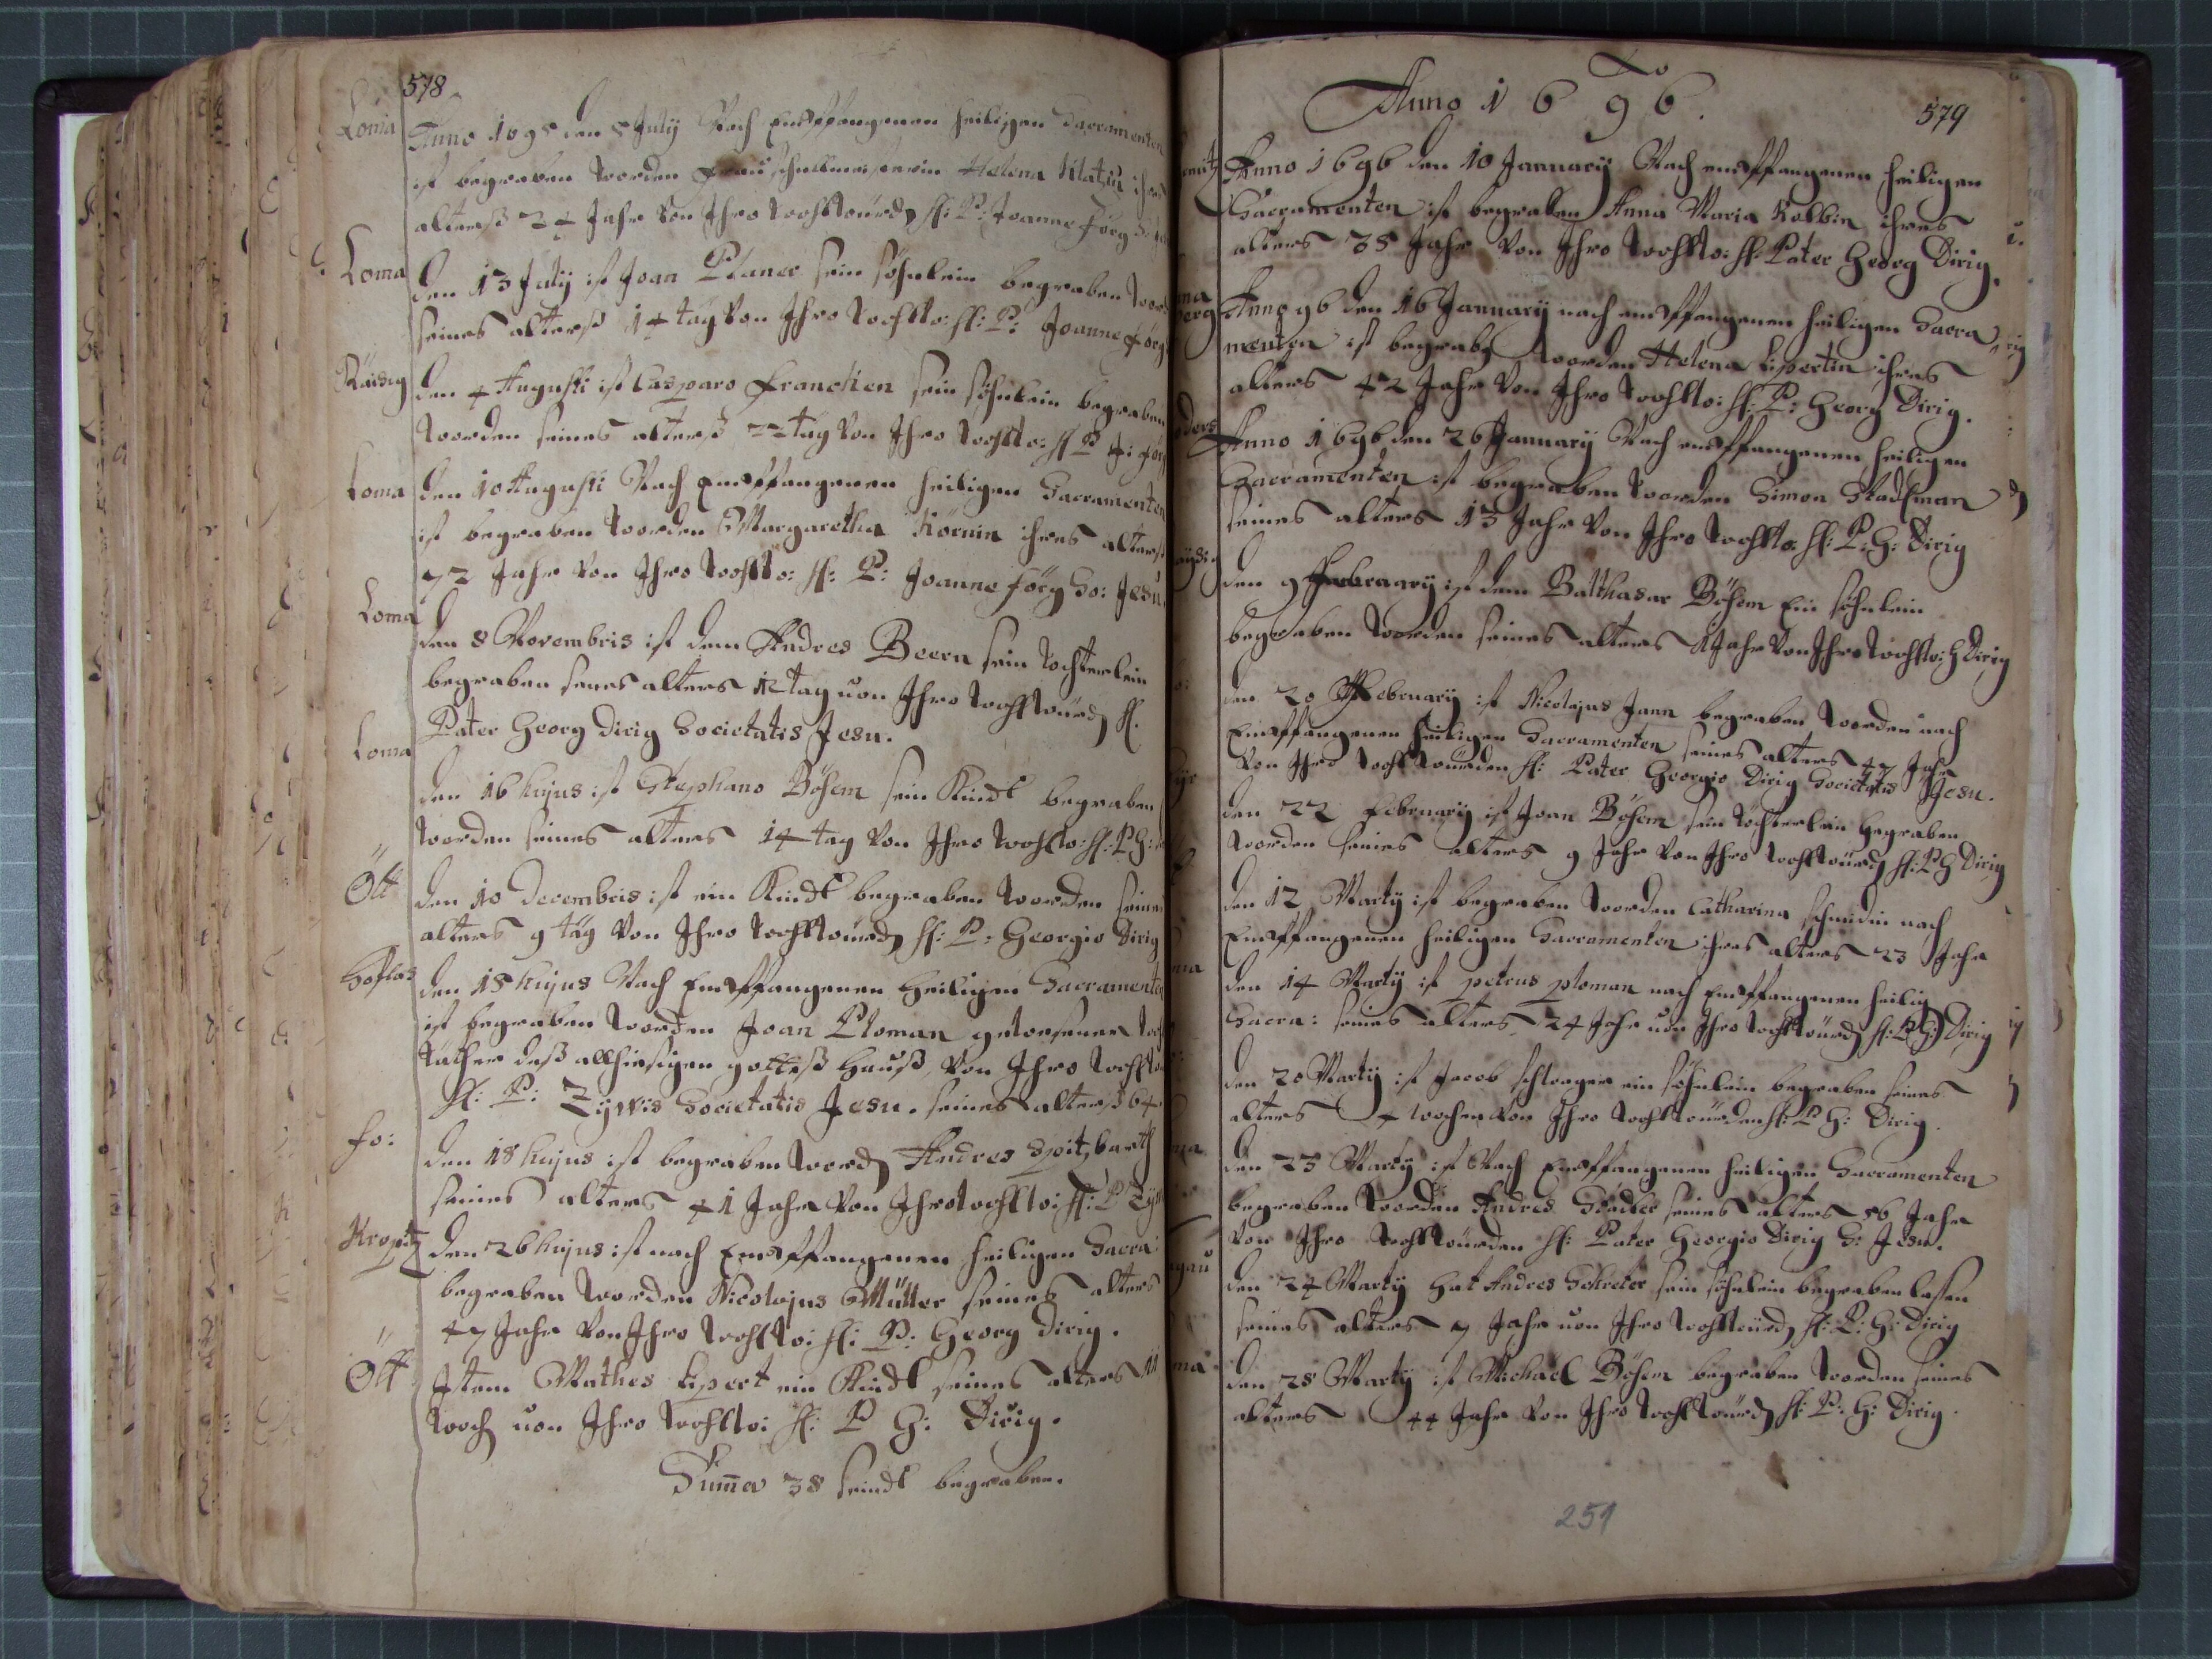 578
Loma Anno 1695 den 5 July Nach Empffangenen heiligen Sacramenten
ist begraben worden Frau Schulmeisterin Helena ihres
alterß 24 Jahr Von Ihro wohlwürdg H: P: Joanne Förg
Loma den 13 July ist Joan Planer sein söhnlein begraben
seines alterß 14 tag Von Ihro wohlw: H: P: Joanne Förg
Räisig den 4 Augusti ist Casparo Francken sein söhnlein begraben
worden seines alterß 22 tag Von Ihro wohlw: H P J: Förg
Loma den 10 Augusti Nach Empffangenen heiligen Sacramenten
ist begraben worden Margaretha Körnin ihres alterß
72 Jahr Von Ihro wohlw: H: P: Joanne Förg So: Jesu
Loma den 8 Novembris ist dem Andres Beern sein tochterlein
begraben seines alters 12 tag von Ihro wohlwürdg H.
Pater Georg Dirig Societatis Jesu.
Loma den 16 hujus ist Stephano Böhem sein Kindt begraben
worden seines alters 14 tag Von Ihro wohlw: H: P G:
Ött den 10 Decembris ist ein Kindt begraben worden seines
alters 9 täg Von Ihro wohlwürdg H: P: Georgio Dirig
Hoflas den 15 hujus Nach Empffangenen Heiligen Sacramenten
ist begraben worden Joan Ploman gewesener
deß allhiesigen gotteß Hauß, Von Ihro wohlw
H: P: Zywis Societatis Jesu. seines alterß 64
fo: den 18 hujus ist begraben wordg Andres Spitzbarth
seines alters 41 Jahr Von Ihro wohlw: H: P
Kropitz den 26 hujus ist nach Empffangenen heiligen Sacra:
begraben worden Nicolajus Müller seines alters
47 Jahr Von Ihro wohlw: H: P: Georg Dirig.
Ött Item Mathes Lipert ein Kindt seines alters 11
woch von Ihro wohlw: H: P G: Dirig.
Suma 38 seindt begraben.
Anno 1696.
579
Anno 1696 den 10 January Nach empffangenen heiligen
Sacramenten ist begraben Anna Maria Kolbin ihres
alters 35 Jahr Von Ihro wohlw: H: Pater Georg Dirig.
Anno 96 den 16 January nach empffangenen heiligen Sacra
menten ist begrabg worden Helena Lipertin ihres
alters 42 Jahr Von Ihro wohlw: H: P: Georg Dirig.
Anno 1696 den 26 January Nach empffangenen heiligen
Sacramenten ist begraben worden Simon Stadlman
seines alters 13 Jahr Von Ihro wohlw: H: P: G: Dirig
den 9 February ist dem Balthasar Böhem Ein söhnlein
begraben worden seines alters 1 Jahr Von Ihro wohlw: G Dirig
den 20 February ist Nicolajus Jann begraben worden nach
Empffangenen heiligen Sacramenten seines alters 47 Jahr
Von Ihro wohlwürden H: Pater Georgio Dirig Societatis Jesu.
den 22 February ist Joan Böhem sein töchterlein begraben
worden seines alters 9 Jahr Von Ihro wohlwürdg H: P G Dirig
den 12 Marty ist begraben worden Catharina Schmidin nach
Empffangenen heiligen Sacramenten ihres alters 23 Jahr
den 14 Marty ist petrus ploman nach Empffangenen heilig
Sacra: seines alters 24 Jahr von Ihro wohlwürdg H: P G: Dirig
den 20 Marty ist Jacob ein söhnlein begraben seines
alters 4 wochen Von Ihro wohlwürden H: P G: Dirig.
den 23 Marty ist Nach Empffangenen heiligen Sacramenten
begraben worden Andres Städler seines alters 56 Jahr
Von Ihro wohlwürden H: Pater Georgio Dirig S: Jesu.
den 24 Marty hat Andres Schreter sein söhnlein begraben lassen
seines alters 7 Jahr von Ihro wohlwürdg H: P: G: Dirig
den 28 Marty ist Michael Böhem begraben worden seines
alters 44 Jahr Von Ihro wohlwürdg H: P: G: Dirig.
251